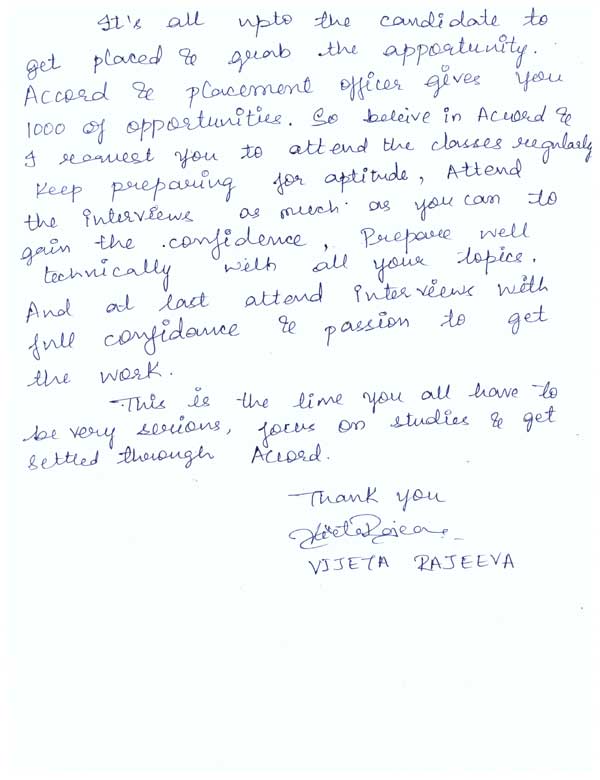 It's all upto the candidate to
get placed & grab the apportunity.
Accord & placement officer gives you
1000 of opportunities. So beleive in Accord &
I request you to attend the classes regularly
Keep preparing for aptitude, Attend
the interviews as much as you can to
gain the confidence, Prepare well
technically with all your topics.
And at last attend interviews with
full confidance & passion to get
the work.
This is the time you all have to
be very serious, focus on studies & get
settled through Accord.
Thank you
VIJETA RAJEEVA